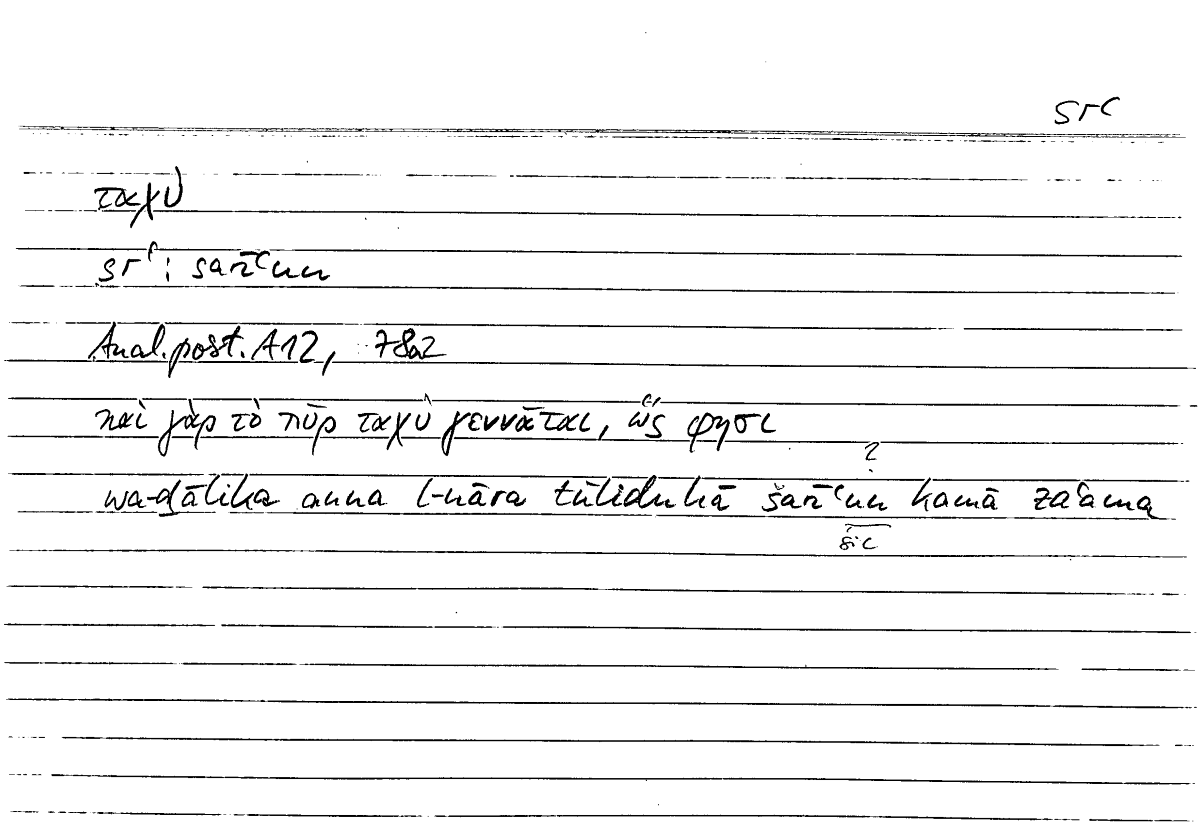 srʿ
ταχὺ
srʿ: sarīʿun
Anal.post. A12, 78a2
καὶ γὰρ τὸ πῦρ ταχὺ γεννᾶται, ὥς φησι
?
wa-ḏālika anna l-nāra tūliduhā šarīʿun kamā zaʿama
sic